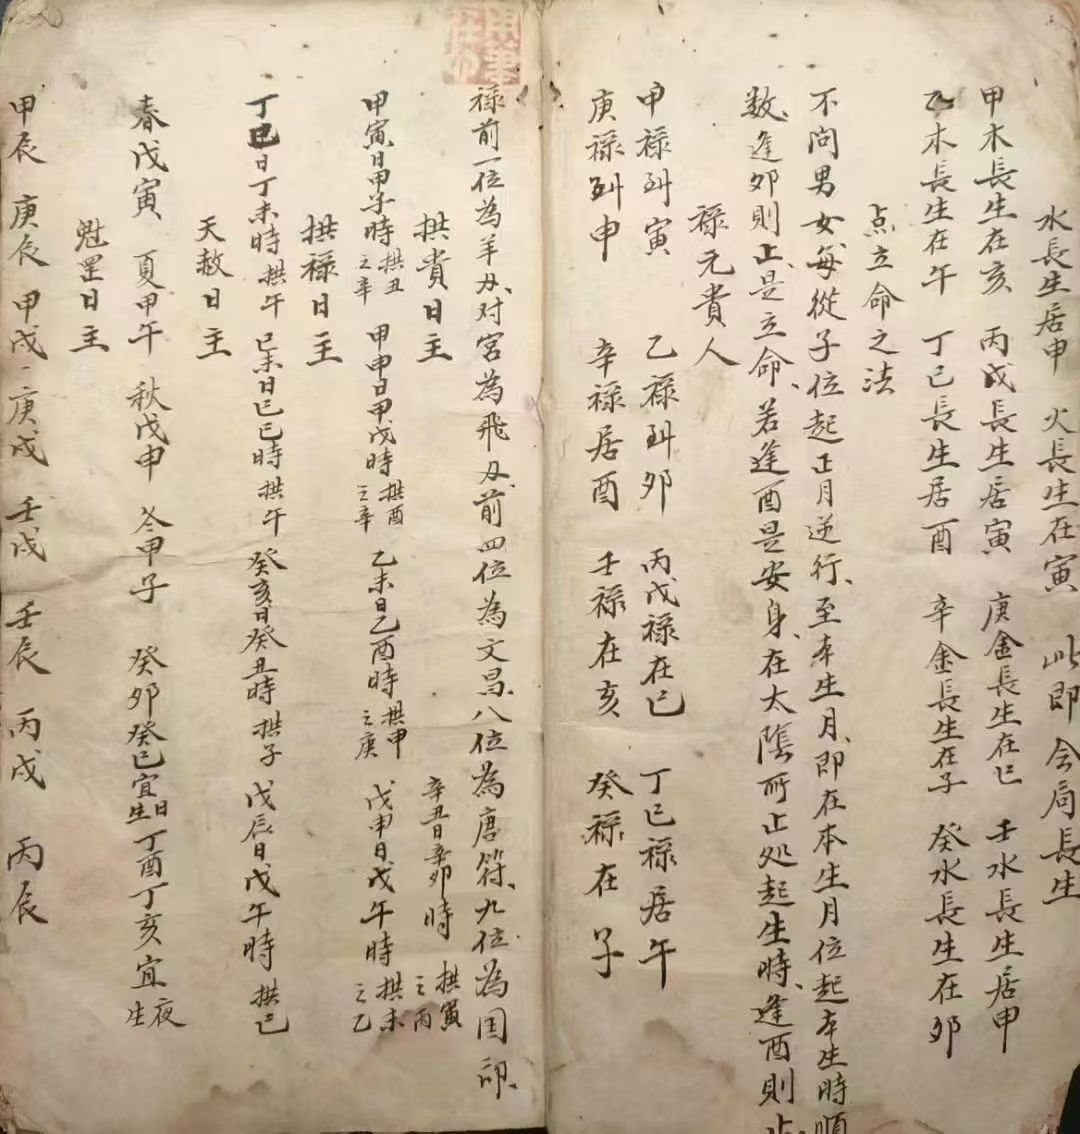 水長生居申　火長生在寅　此即会局長生
甲木長生在亥　丙戊長生居寅　庚金長生在巳　壬水長生居申
乙木長生在午　丁己長生居酉　辛金長生在子　癸水長生在卯
点立命之法
不问男女每從子位起正月逆行、至本生月、即在本生月位起本生時順
数、逢卯則止、是立命、若逢酉是安身、在大陰所止处起生時、逢酉則止
禄元貴人
甲禄到寅　乙禄到卯　丙戊禄在巳　丁己禄居午
庚禄到申　辛禄居酉　壬禄在亥　癸禄在子
禄前一位為羊刃、对宮為飛刃、前四位為文昌、八位為唐符、九位為国印、
拱貴日主　辛丑日辛卯時 拱寅之丙
甲寅日甲子時 拱丑之辛　甲申日甲戌時 拱酉之辛　乙未日乙酉時 拱申之庚　戊申日戊午時 拱未之乙
拱禄日主
丁巳日丁未時 拱午　己未日己巳時 拱午　癸亥日癸丑時 拱子　戊辰日戊午時 拱巳
天赦日主
春戊寅　夏甲午　秋戊申　冬甲子　癸卯癸巳宜日生丁酉丁亥宜夜生
魁罡日主
甲辰　庚辰　甲戌　庚戌　壬戌　壬辰　丙戌　丙辰